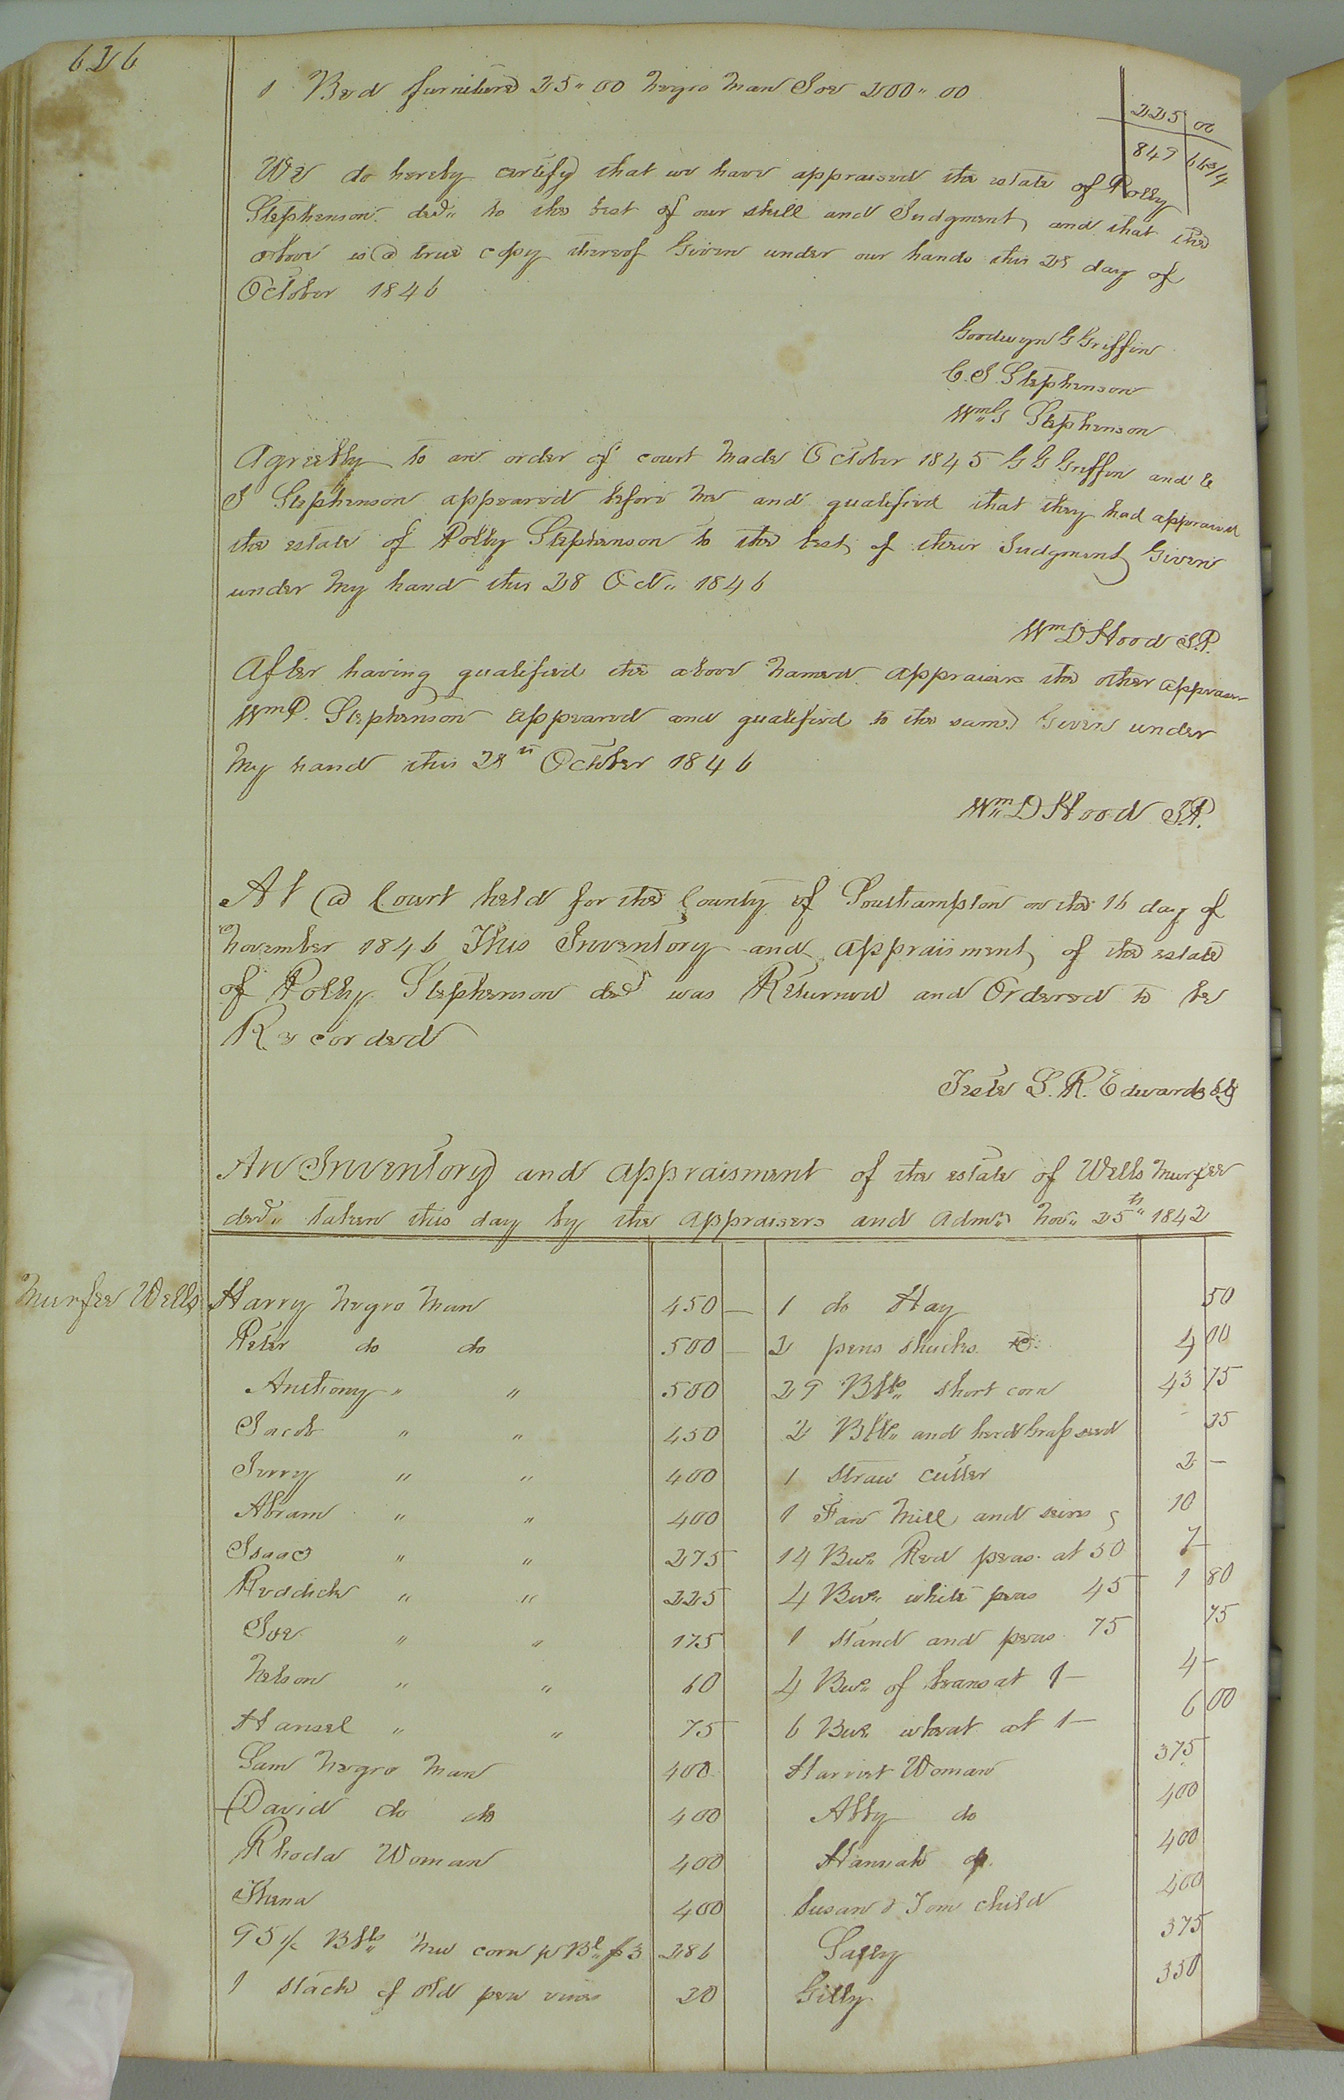 626
1 Bed furniture 25" 00 Negro Man Joe 200" 00
225 00
849 66 3/4
We do hereby certify that we have appraised the estate of Polly
Stephenson decd" to the best of our skill and Judgment and that the
above is a true copy thereof Given under our hands this 28 day of
October 1846
Goodwyn G Griffin
C. J. Stephenson
Wm" Stephenson
Agreebly to an order of court Made October 1845 G G Griffin and C
J Stephenson appeared before me and qualified that they had appraised
the estate of Polly Stephenson to the best of their Judgment Given
under My hand this 28 Oct" 1846
Wm D Hood J.P.
After having qualified the above Named appraisers the other appraiser
Wm P. Stephenson appeared and qualified to the same Given under
My hand this 28th October 1846
Wm" D Hood J.P.
At a Court held for the County of Southampton on the 16 day of
November 1846 This Inventory and appraisment of the estate
of Polly Stephenson decd was Returned and Ordered to be
Recorded
Teste L. R. Edwards Clk
An Inventory and appraisment of the estate of Wells Murfee
decd" taken this day by the appraisers and Admr Nov" 25th" 1842
Murfee Wells
Harry Negro Man 450 — 1 do Hay 50
Peter do do 500 — 2 pens shucks 4 00
Anthony " " 500 29 Bbls" short corn 43 75
Jacob " " 450 2 Bbls" and herd Grass seed 25
Jerry " " 400 1 straw cutter 2 —
Abram " " 400 1 Fan Mill and 10
Isaac " " 275 14 Bus" Red peas at 50 7 —
Reddick " " 225 4 Bus" white peas 45 1 80
Joe " " 175 1 stand and peas 75 75
Nelson " " 60 4 Bus" of beans at 1— 4 —
Hansel " " 75 6 Bus" wheat at 1— 6 00
Sam Negro Man 400 Harriet Woman 375
David do do 400 Abby do 400
Rhoda Woman 400 Hannah 400
400 Susan & Tom child 400
95 1/2 Bbls" New corn pr Bl" $3 286 Salley 375
1 stack of old pea vines 20 Gilly 350